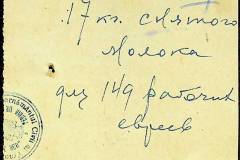 17 кг. снятого
молока
для 149 рабочих
евреев